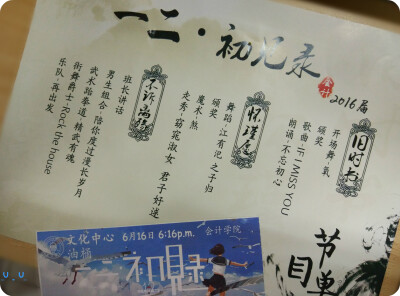 一二·初见录
会计
2016届
节目单
旧时书
开场舞·氧
颁奖
歌曲·IF I MISS YOU
朗诵·不忘初心
怀瑾居
舞蹈·江有汜 之子归
颁奖
魔术·煞
走秀·窈窕淑女 君子好逑
不诉离殇
班长讲话
男生组合·陪你度过漫长岁月
武术跆拳道·精武有魂
街舞爵士·Rock the house
乐队·再出发
文化中心 6月16日 6:16p.m. 会计学院
初見録